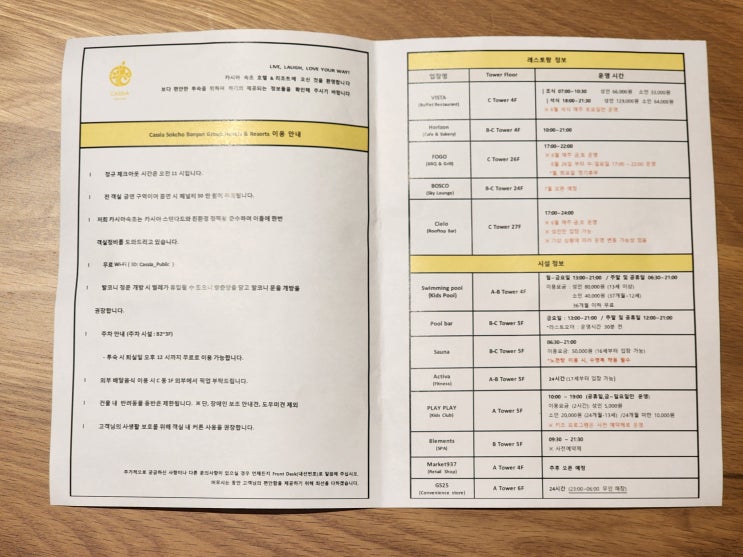 CASSIA
LIVE, LAUGH, LOVE YOUR WAY!
카시아 속초 호텔 & 리조트에 오신 것을 환영합니다
보다 편안한 투숙을 위하여 하기의 제공되는 정보들을 확인해 주시기 바랍니다.
Cassia Sokcho Banyan Group Hotels & Resorts 이용 안내
정규 체크아웃 시간은 오전 11 시입니다.
전 객실 금연 구역이며 흡연 시 페널티 30 만 원이 부과됩니다.
저희 카시아속초는 카시아 스탠다드와 친환경 정책을 준수하여 이틀에 한번
객실정비를 도와드리고 있습니다.
무료 Wi-Fi ( ID: Cassia_Public )
발코니 창문 개방 시 벌레가 유입될 수 있으니 방충망을 닫고 발코니 문을 개방을
권장합니다.
주차 안내 (주차 시설 : B2~5F)
- 투숙 시 퇴실일 오후 12 시까지 무료로 이용 가능합니다.
외부 배달음식 이용 시 C 동 1F 외부에서 픽업 부탁드립니다.
건물 내 반려동물 동반은 제한됩니다. ※ 단, 장애인 보조 안내견, 도우미견 제외
고객님의 사생활 보호를 위해 객실 내 커튼 사용을 권장합니다.
추가적으로 궁금하신 사항이나 다른 문의사항이 있으실 경우 언제든지 Front Desk(내선번호)로 말씀해 주십시오.
머무시는 동안 고객님의 편안함을 제공하기 위해 최선을 다하겠습니다.
레스토랑 정보
업장명 Tower Floor 운영 시간
VISTA (Buffet Restaurant) C Tower 4F
| 조식 07:00~10:30 성인 66,000원 소인 33,000원
| 석식 18:00~21:30 성인 129,000원 소인 64,000원
※ 6월 석식 매주 토요일만 운영
Horizon (Cafe & Bakery) B-C Tower 4F 10:00~21:00
FOGO (BBQ & Grill) C Tower 26F
17:00~22:00
※ 6월 매주 금,토 운영
6월 24일 부터 수-일요일 17:00 ~ 22:00 운영
*월, 화요일 정기휴무
BOSCO (Sky Lounge) B-C Tower 24F *월 오픈 예정
Cielo (Rooftop Bar) C Tower 27F
17:00~24:00
※ 6월 매주 금,토 운영
※ 성인만 입장 가능
※ 기상 상황에 따라 운영 변동 가능성 있음
시설 정보
Swimming pool (Kids Pool) A-B Tower 4F
월~금요일 13:00~21:00 / 주말 및 공휴일 06:30~21:00
이용요금 : 성인 80,000원 (13세 이상)
소인 40,000원 (37개월~12세)
36개월 이하 무료
Pool bar B-C Tower 5F
금요일 : 13:00~21:00 / 주말 및 공휴일 12:00~21:00
*라스트오더 : 운영시간 30분 전
Sauna B-C Tower 5F
06:30~21:00
이용요금: 50,000원 (16세부터 입장 가능)
*노천탕 이용 시, 수영복 착용 필수
Activa (Fitness) A-B Tower 5F 24시간 (17세부터 입장 가능)
PLAY PLAY (Kids Club) A Tower 5F
10:00 ~ 19:00 (공휴일,금~일요일만 운영)
이용요금 (2시간) 성인 5,000원
소인 20,000원 (24개월-13세) /24개월 미만 10,000원
※ 키즈 프로그램은 사전 예약제로 운영
Elements (SPA) B Tower 5F
09:30 ~ 21:30
※ 사전예약제
Market937 (Retail Shop) A Tower 4F 추후 오픈 예정
GS25 (Convenience store) A Tower 6F 24시간 (23:00~06:00 무인 매장)